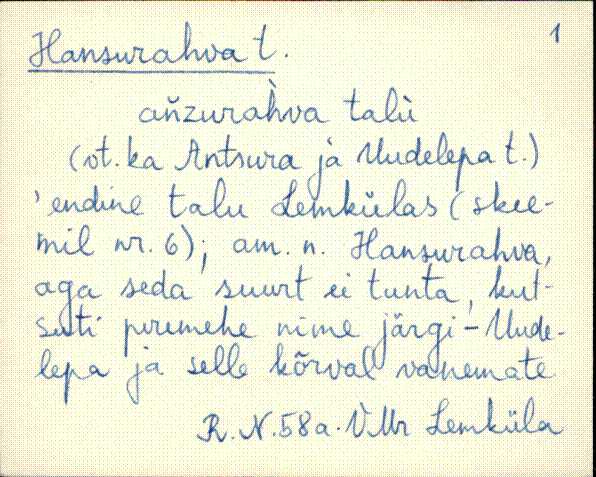 Hansurahva t. 1
ańzuràhva talù
(vt. ka Antsura ja Uudelepa t.)
'endine talu Lemkülas (skee-
mil nr. 6); am. n. Hansurahva,
aga seda suurt ei tunta, kut-
suti peremehe nime järgi - Uude-
lepa ja selle kõrval vanemate
R. N. 58 a. VMr Lemküla